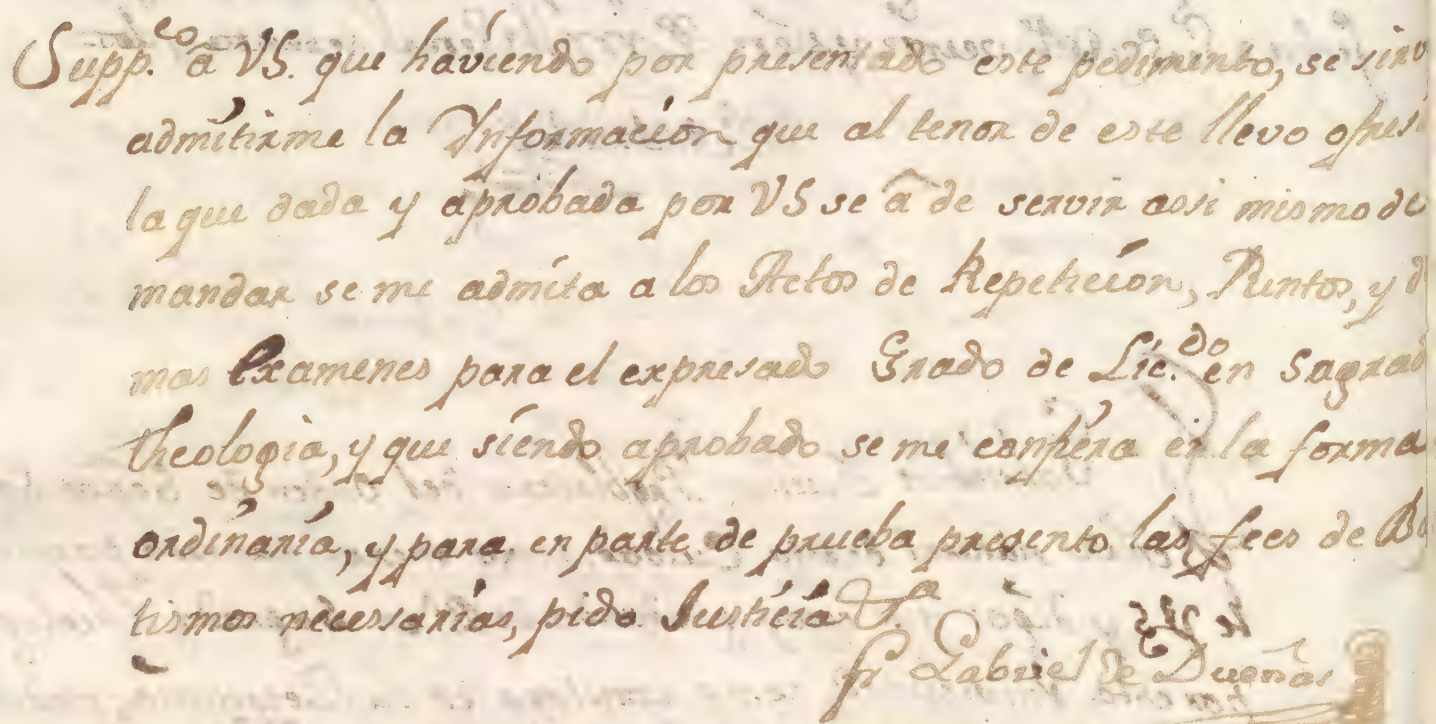 Supp.co â VS. que havíendo por presentado este pedimento, se sirv
admítirme la Ynformacíon que al tenor de este llevo ofres
la que dada y aprobada por VS se â de servir assi mismo de
mandar se me admíta a los Actos de Repetícíon, Puntos, y d
mas Examenes para el expresado Grado de Lic.do en Sagrad
Theología, y que síendo aprobado se me confíera en la forma
ordínaría, y para en parte de prueba presento las fees de Ba
tismos necessarías, pido Justícía &.a
fr Gabriel de Dueñas